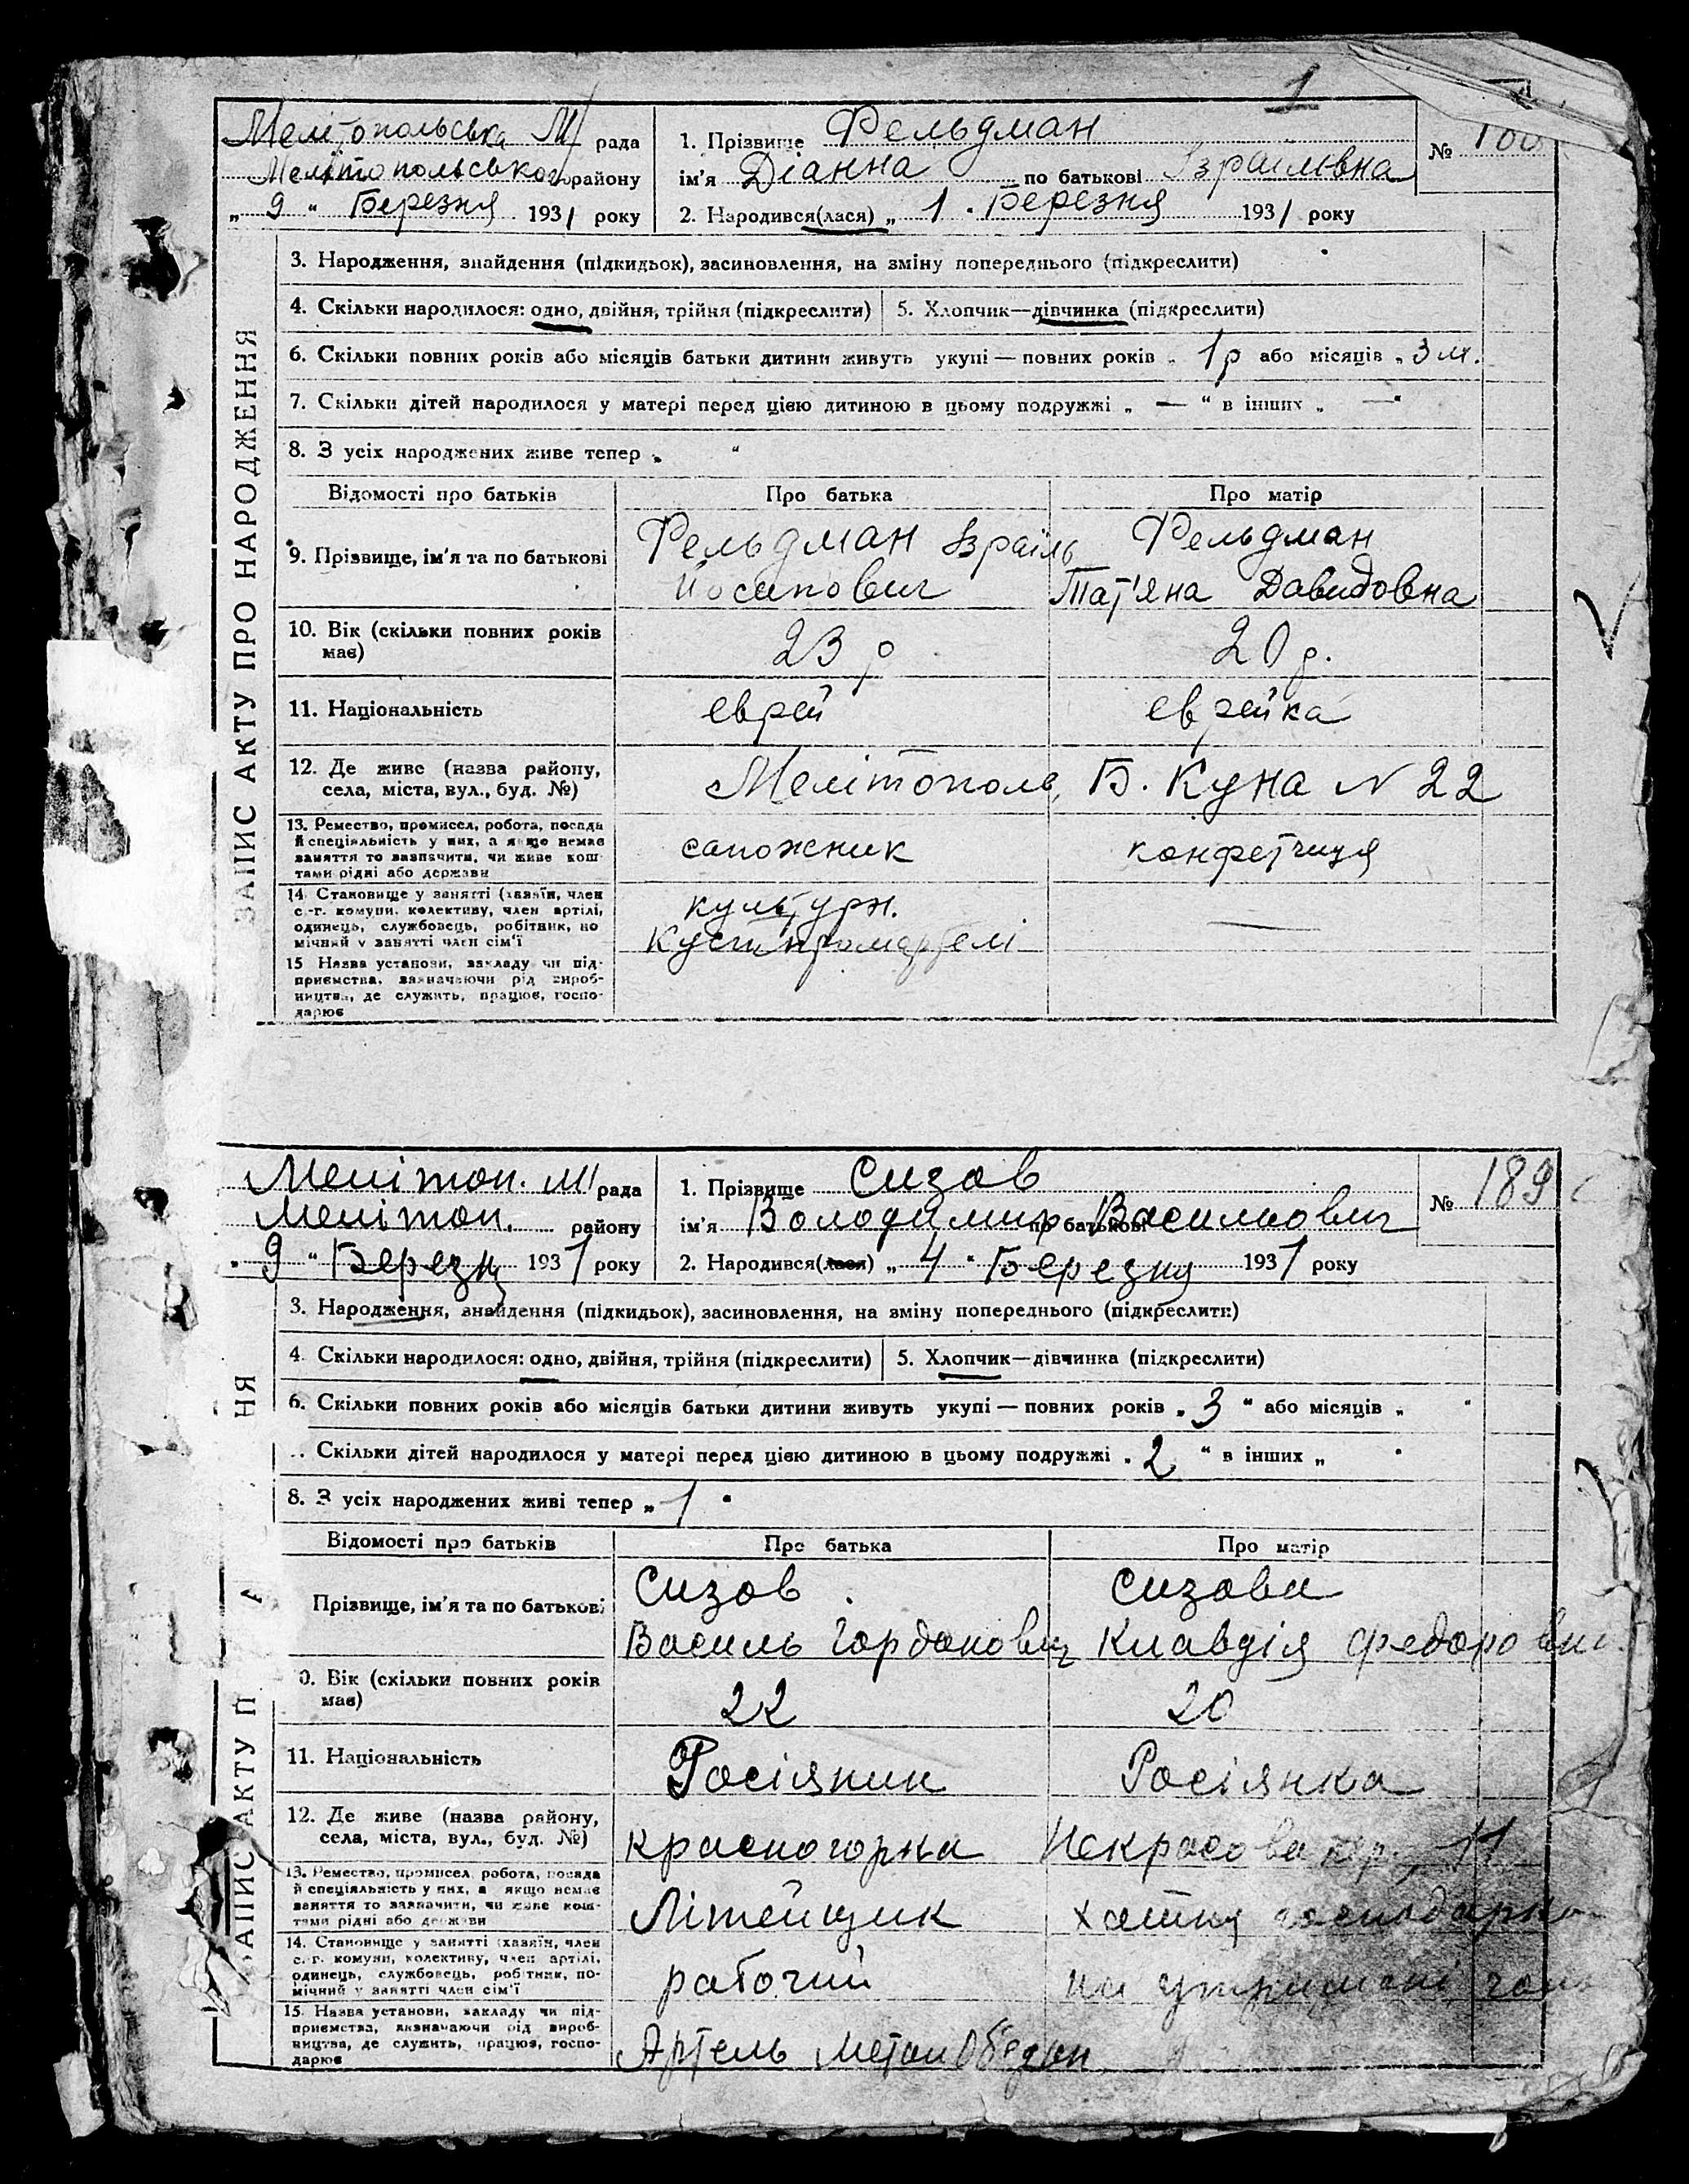 1
Мелітопольська М/ рада
Мелітопольського району
„ 9 “ Березня 1931 року
1. Прізвище Фельдман
ім'я Діанна по батькові Ізраілівна
2. Народився(лася) „ 1 “ Березня 1931 року
№
ЗАПИС АКТУ ПРО НАРОДЖЕННЯ
3. Народження, знайдення (підкидьок), засиновлення, на зміну попереднього (підкреслити)
4. Скільки народилося: одно, двійня, трійня (підкреслити) 5. Хлопчик—дівчинка (підкреслити)
6. Скільки повних років або місяців батьки дитини живуть укупі — повних років „ 1р або місяців „ 3 м.
7. Скільки дітей народилося у матері перед цією дитиною в цьому подружжі „ — “ в інших „ — “
8. З усіх народжених живе тепер „ “
Відомості про батьків Про батька Про матір
9. Прізвище, ім'я та по батькові
Фельдман Ізраіль
Йосипович
Фельдман
Тат'яна Давидовна
10. Вік (скільки повних років
має)
23 р
20 р.
11. Національність еврей еврейка
12. Де живе (назва району,
села, міста, вул., буд. №)
Мелітополь, Б. Куна N 22
13. Ремество, промисел, робота, посада
й спеціяльність у них, а якщо немає
заняття то зазначити, чи живе кош
тами рідні або держави
сапожник
конфетчиця
14. Становище у занятті (хазяїн, член
с.-г. комуни, колективу, член артілі,
одинець, службовець, робітник, по
мічний у занятті член сім'ї
культурн.
Куст промартелі
15 Назва установи, закладу чи під-
приємства, зазначаючи рід вироб-
ництва, де служить, працює, госпо-
дарює
Мелітоп. М/ рада
Мелітоп. району
„ 9 “ Березня 1931 року
1. Прізвище Сизов
ім'я Володимир по батькові Василиович
2. Народився(лася) „ 4 “ Березня 1931 року
№ 189
3. Народження, знайдення (підкидьок), засиновлення, на зміну попереднього (підкреслити)
4. Скільки народилося: одно, двійня, трійня (підкреслити) 5. Хлопчик—дівчинка (підкреслити)
6. Скільки повних років або місяців батьки дитини живуть укупі — повних років „ 3 “ або місяців „ “
Скільки дітей народилося у матері перед цією дитиною в цьому подружжі „ 2 “ в інших „ “
8. З усіх народжених живі тепер „ 1 “
Відомості про батьків Про батька Про матір
Прізвище, ім'я та по батькові
Сизов
Василь Гордонович
Сизова
Клавдія Федоровн
0. Вік (скільки повних років
має)
22
20
11. Національність Росіянин Росіянка
12. Де живе (назва району,
села, міста, вул., буд. №)
Красногорка Некрасова пер., 11
13. Ремество, промисел, робота, посада
й спеціяльність у них, а якщо немає
заняття то зазначити, чи живе кош-
тами рідні або держави
Літейщик
хатня господарка
14. Становище у занятті (хазяїн, член
с.-г. комуни, колективу, член артілі,
одинець, службовець, робітник, по-
мічний у занятті член сім'ї
рабочий
на утриманні чол
15. Назва установи, закладу чи під-
приємства, зазначаючи рід вироб-
ництва, де служить, працює, госпо-
дарює
Артель